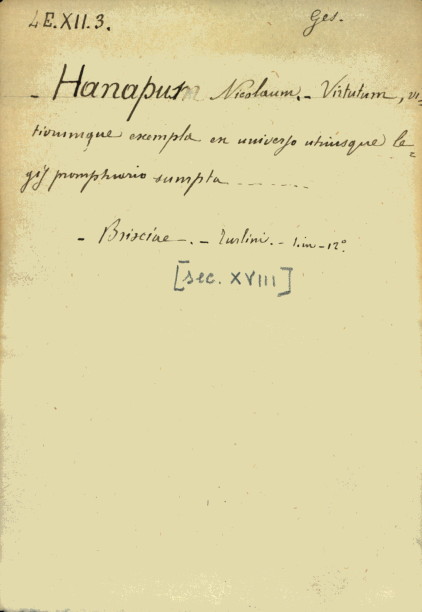 4E.XII.3. Ges.
- Hanapum Nicolaum. - Virtutum, vi=
tiorumque exempla ex universo utriusque le=
gis promptuario sumpta
- Brixiae - . - Turlini. - 1. in - 12°.
[sec. XVIII]